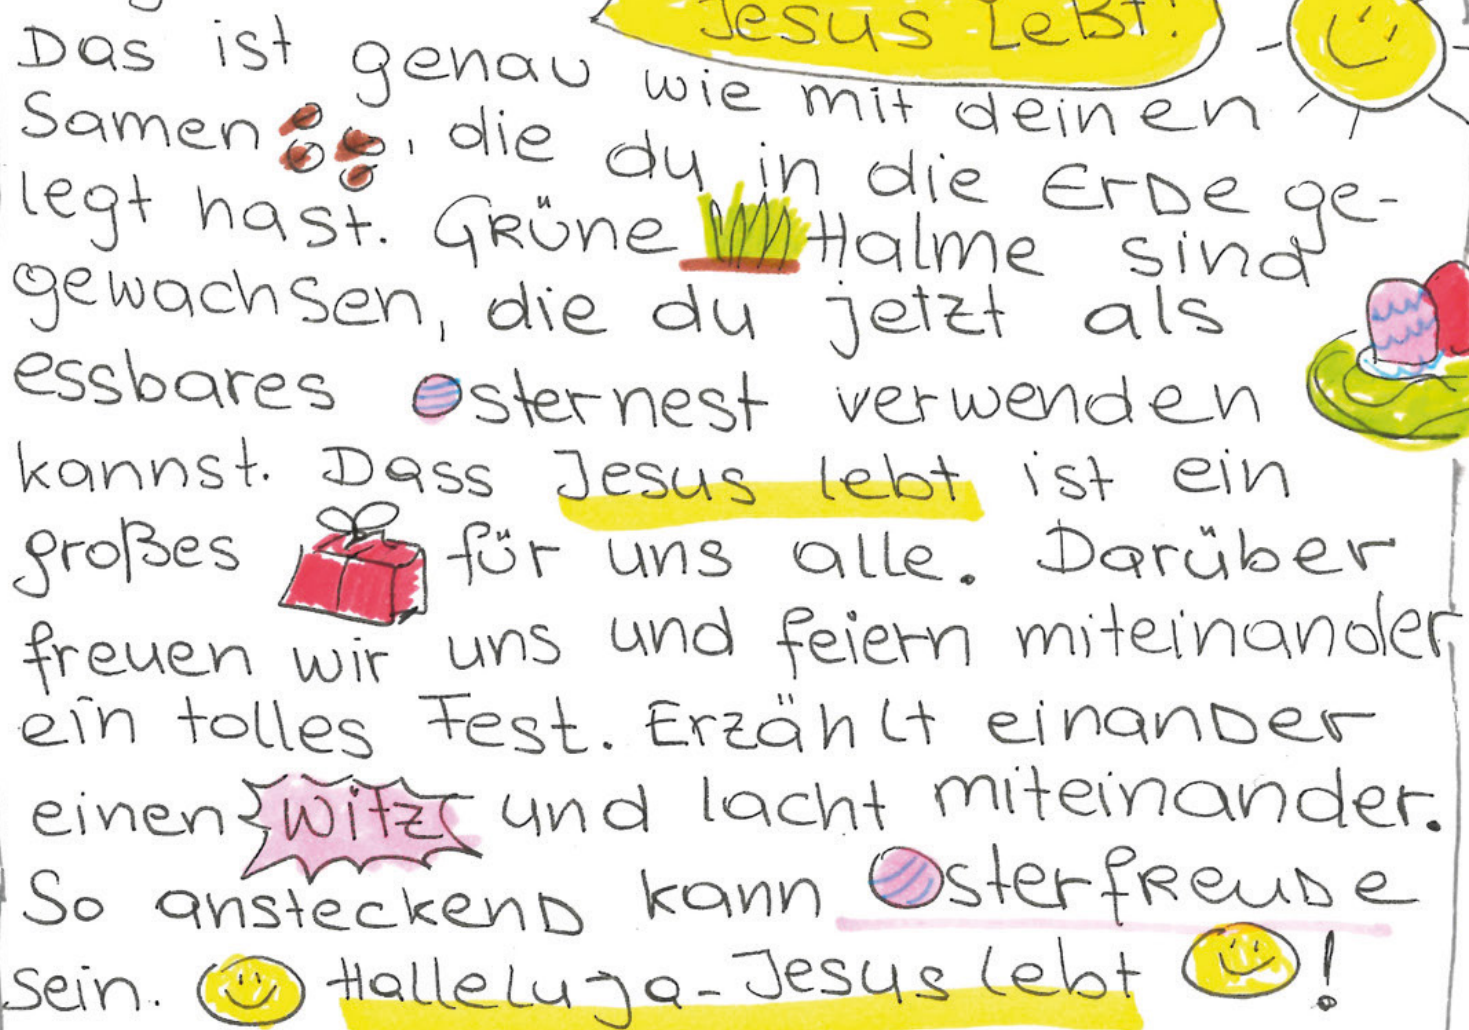 Jesus lebt!
Das ist genau wie mit deinen
Samen, die du in die Erde ge-
legt hast. Grüne Halme sind
gewachsen, die du jetzt als
essbares Osternest verwenden
kannst. Dass Jesus lebt ist ein
großes für uns alle. Darüber
freuen wir uns und feiern miteinander
ein tolles Fest. Erzählt einander
einen Witz und lacht miteinander.
So ansteckend kann Osterfreude
sein. Halleluja - Jesus lebt!